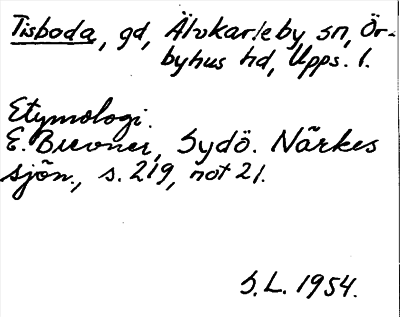 Tisboda, gd, Älvkarleby sn, Ör-
byhus hd, Upps. l.
Etymologi.
E. Brevner, Sydö. Närkes
sjön., s. 219, not 21.
S.L. 1954.